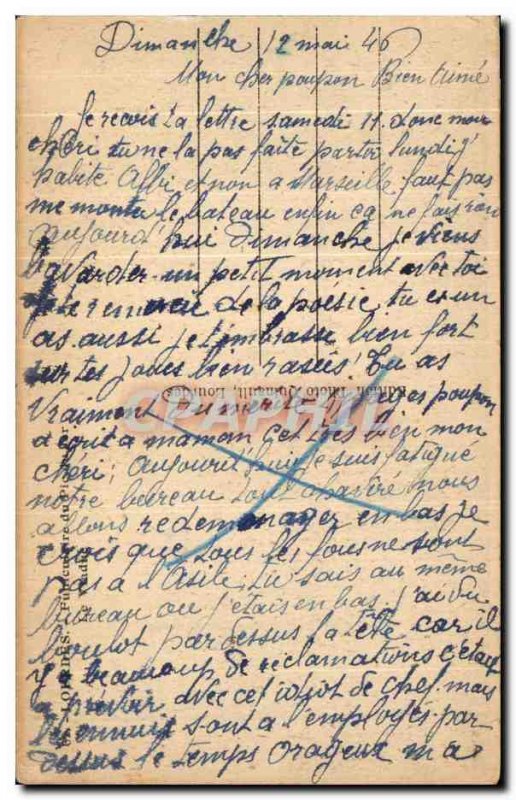 Dimanche 12 mai 46
Mon cher poupon Bien Aimé
Je recois ta lettre samedi 11. donc mon
chéri tu ne la pas faite partir lundi j'
habite et non a Marseille faut pas
me monter le bateau enfin ça ne fais rien
aujourd'hui Dimanche je viens
bavarder un petit moment avec toi
je te remercie de la poésie, tu es un
as. aussi je t'embrasse bien fort
sur tes joues bien rasées! Tu as
Vraiment du merite mon poupon
d'écrit a maman cet tres bien mon
chéri; aujourd'hui je suis fatigué
notre bureau tout chaviré nous
allons redemenager en bas je
crois que tous les fous ne sont
pas a l'Asile. tu sais au même
bureau ou j'etais en bas. j'ai du
boulot par dessus la tête car il
y a beaucoup de réclamations c'étais
a prévoir avec cet idiot de chef mais
les ennuis sont a l'employés par
dessus le temps orageux m'a
Edition Photo Quinault, Lourdes
LOURDES.
CPARAMA